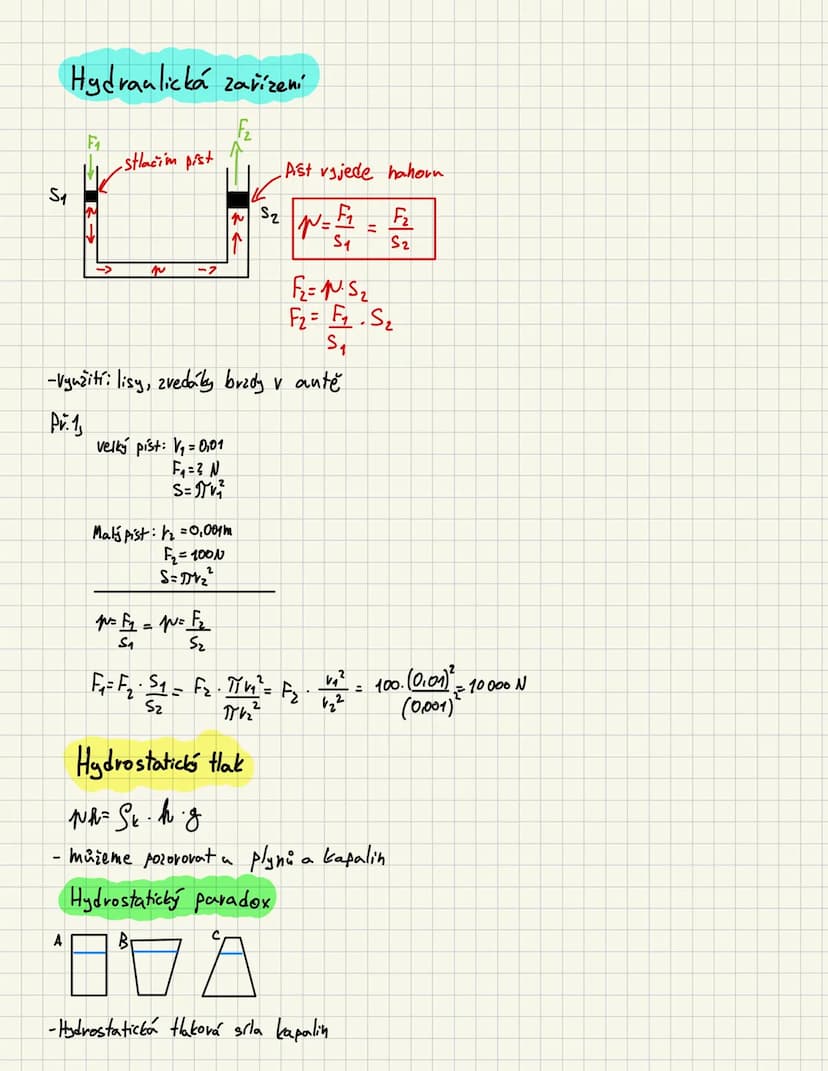 Hydraulická zařízení
F₁
F₂
stlačím píst
Píst vyjede nahoru
S₁
S₂
p
p
p = F₁/S₁ = F₂/S₂
-> p ->
F₂ = p · S₂
F₂ = F₁/S₁ · S₂
- Využití: lisy, zvedáky brzdy v autě
Př. 1,
Velký píst: r₁ = 0,01
F₁ = ? N
S = πr₁²
Malý píst: r₂ = 0,001m
F₂ = 100N
S = πr₂²
p = F₁/S₁ = p = F₂/S₂
F₁ = F₂ · S₁/S₂ = F₂ · πr₁²/πr₂² = F₂ · r₁²/r₂² = 100 · (0,01)²/(0,001)² = 10 000 N
Hydrostatický tlak
ph = ρk · h · g
- můžeme pozorovat u plynů a kapalin
Hydrostatický paradox
A B C
- Hydrostatická tlaková síla kapalin